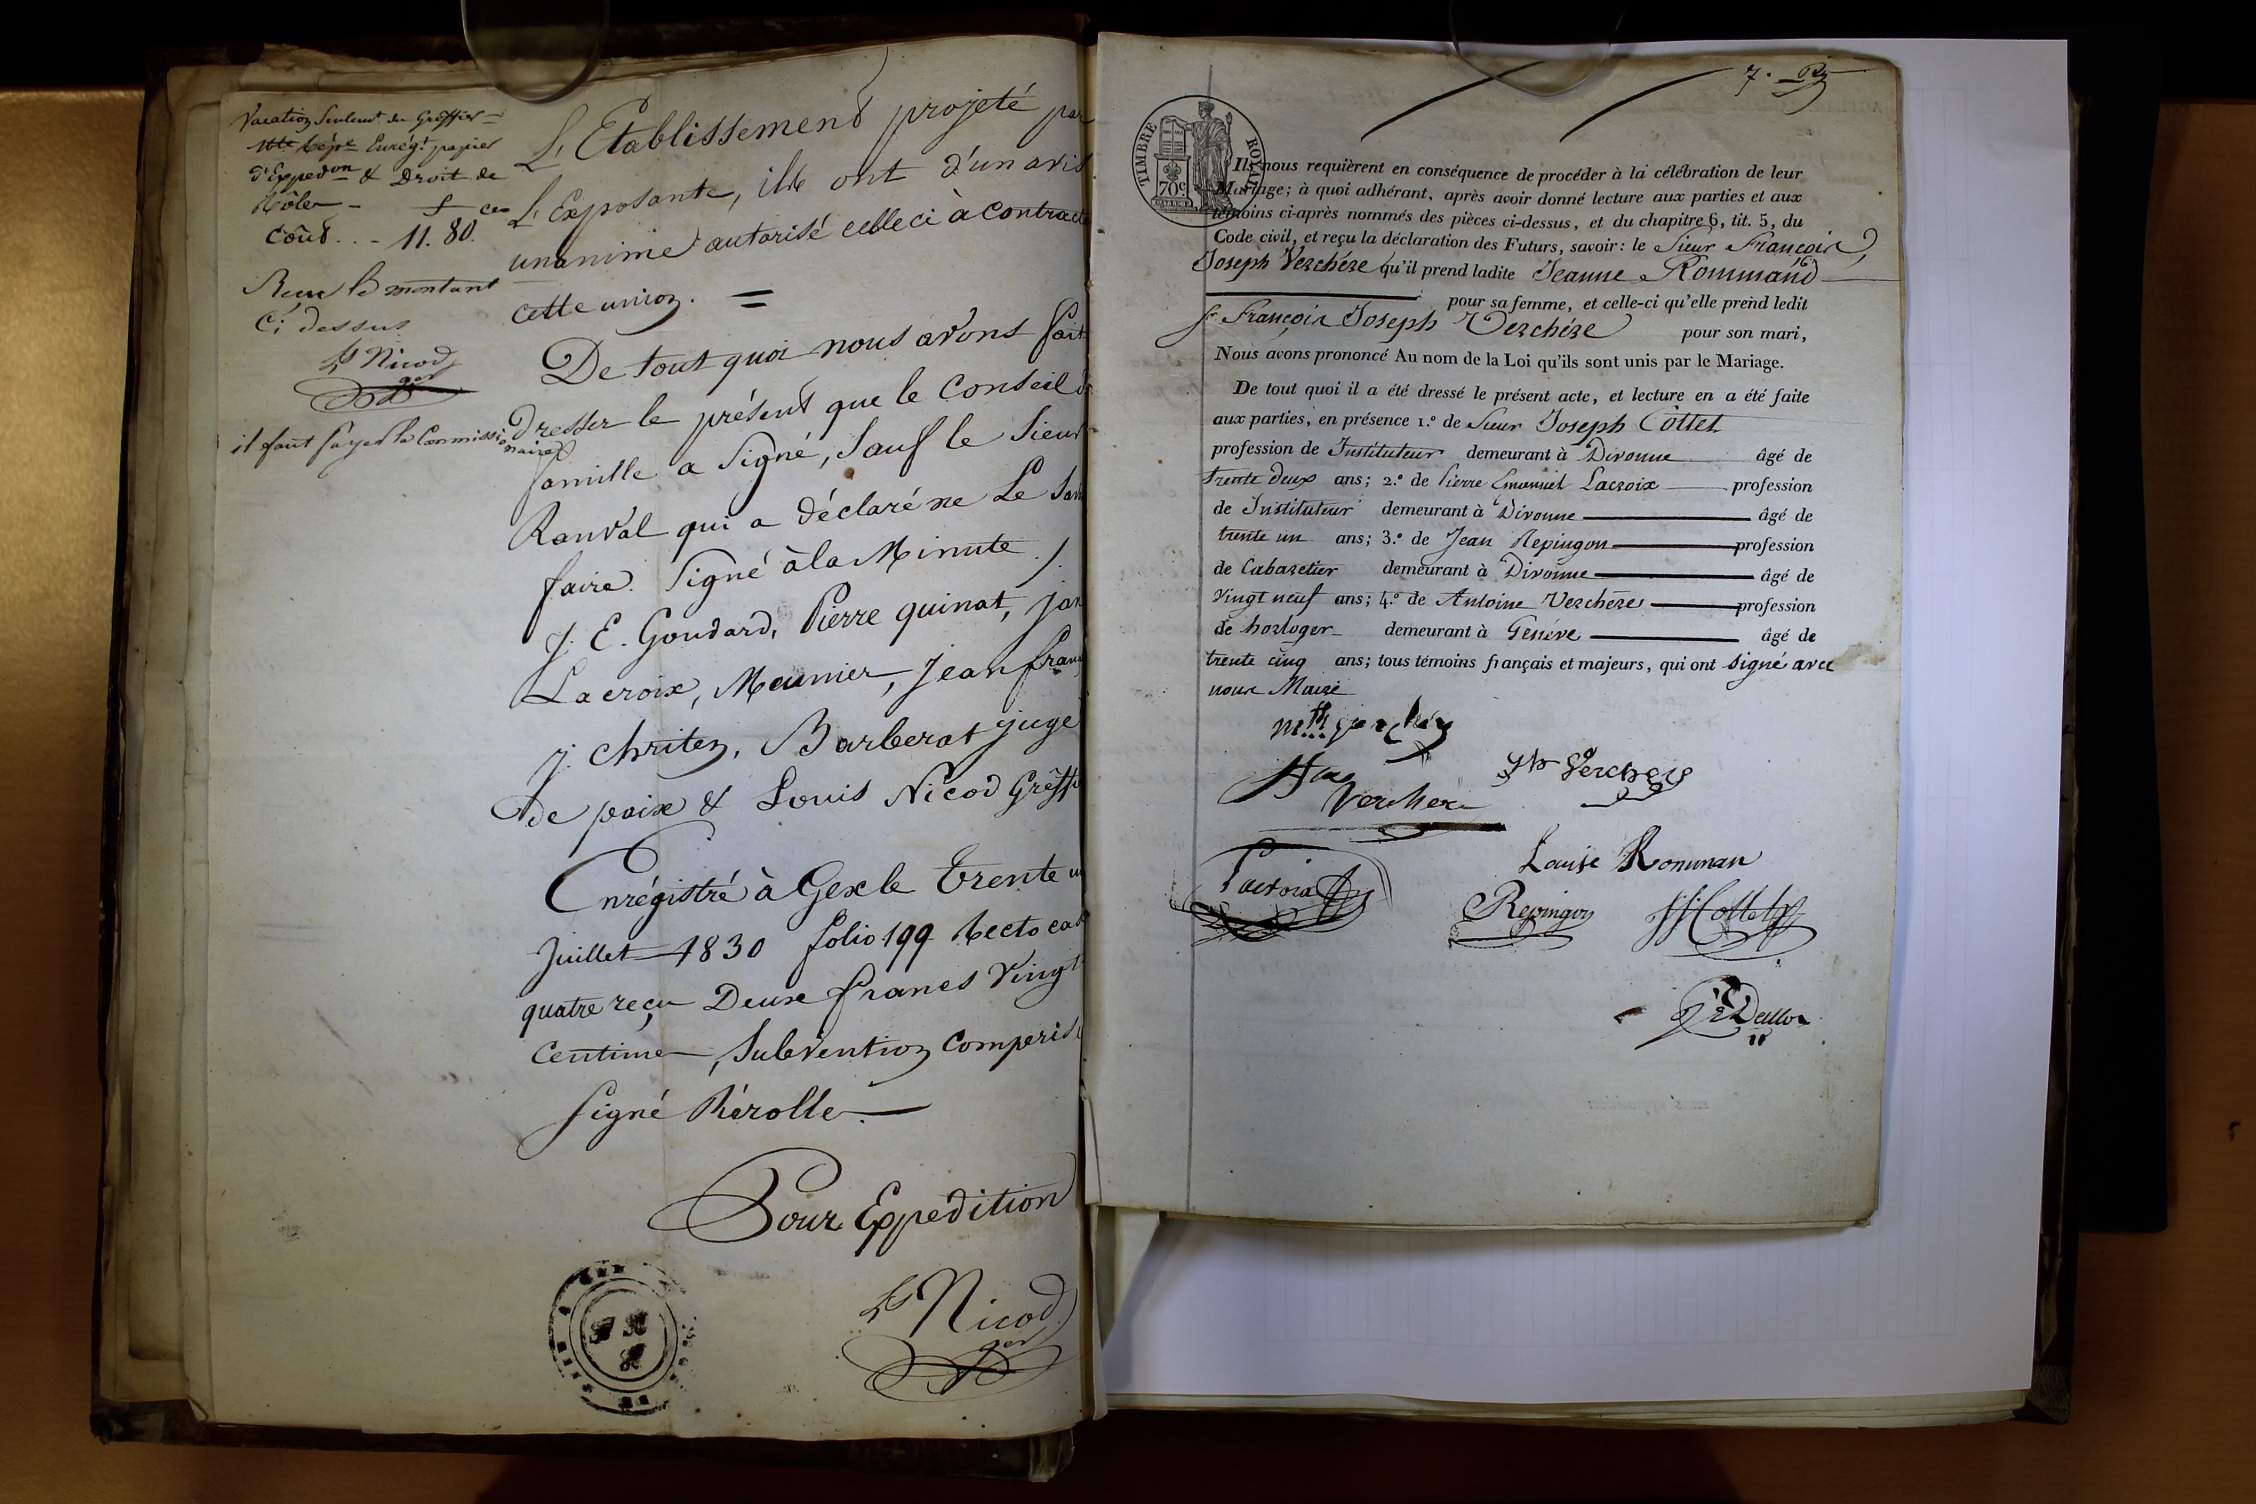 Vacation Seulemt du Greffier =
Enrégt papier
d'Expedon & Droit de
Rôle - f ces
Coût . . - 11. 80.
Reçu le montant
Ci dessus
Ls Nicod
ger
il faut payer le Commissionnaire
L'Etablissement projeté par
L'Exposante, ils ont d'un avis
unanime autorisé celle ci à contracte
cette union. =
De tout quoi nous avons fait
dresser le présent que le Conseil de
famille a Signé, Sauf le Sieur
Ranval qui a déclaré ne Le Savoi
faire. Signé à la Minute ./.
J. E. Goudard, Pierre quinat, jan
Lacroix, Meunier, Jean franç
j. chriten, Barberat juge
de paix & Louis Nicod Greffi
Enrégistré à Gex le Trente un
Juillet 1830 folio 199 Recto cas
quatre reçu Deux francs Vingt
Centimes, Subvention comprise
signé Rérolle
Pour Expedition
Ls Nicod
ger
7. Rz
TIMBRE ROYAL
70c
Ils nous requièrent en conséquence de procéder à la célébration de leur
Mariage; à quoi adhérant, après avoir donné lecture aux parties et aux
témoins ci-après nommés des pièces ci-dessus, et du chapitre 6, tit. 5, du
Code civil, et reçu la déclaration des Futurs, savoir: le Sieur François
Joseph Verchére qu'il prend ladite Jeanne Rommand
pour sa femme, et celle-ci qu'elle prend ledit
Sr François Joseph Verchére pour son mari,
Nous avons prononcé Au nom de la Loi qu'ils sont unis par le Mariage.
De tout quoi il a été dressé le présent acte, et lecture en a été faite
aux parties, en présence 1.º de Sieur Joseph Cottet
profession de Instituteur demeurant à Divonne âgé de
trente deux ans; 2.º de Pierre Emanuel Lacroix profession
de Instituteur demeurant à Divonne âgé de
trente un ans; 3.º de Jean Repingon profession
de Cabaretier demeurant à Divonne âgé de
vingt neuf ans; 4.º de Antoine Verchére profession
de horloger demeurant à Genéve âgé de
trente cinq ans; tous témoins français et majeurs, qui ont signé avec
nous Maire
Jh Verchere
Verchere
Louise Romman
Lacroix
Repingon
Cottet